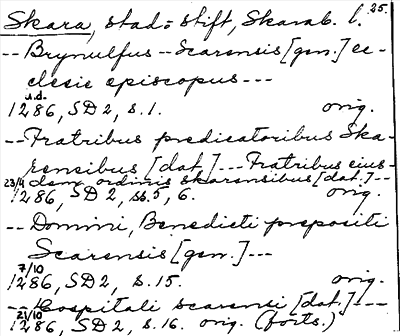 Skara, stad o stift, Skarab. l. 25.
-- Brynulfus -- Scarensis [gen.] ec-
clesie episcopus ---
u.d.
1286, SD 2, s. 1. orig.
-- Fratribus predicatoribus Ska-
rensibus [dat.] --- Fratribus eius-
dem ordinis skarensibus [dat.] --
23/4
1286, SD 2, ss. 5, 6. orig.
-- Domini, Benedicti prepositi
Scarensis [gen.] ---
7/10
1286, SD 2, s. 15. orig.
-- Hospitali scarensi [dat.] ---
21/10
1286, SD 2, s. 16. orig. (forts.)